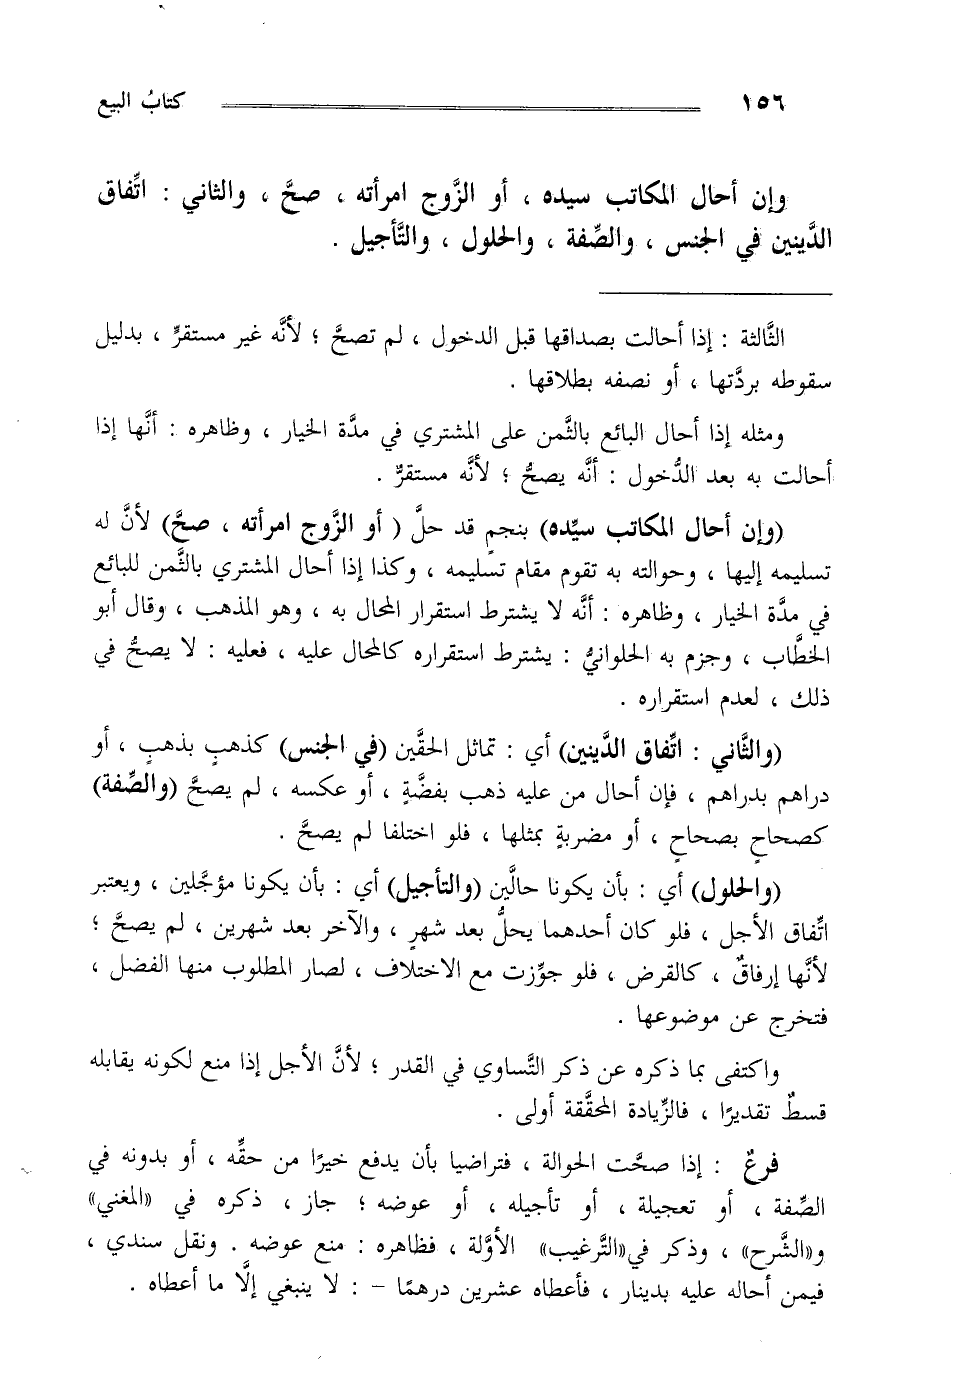 ١٥٦ كتابُ البيع
وإن أحال المكاتب سيده ، أو الزَّوج امرأته ، صحَّ ، والثاني : اتِّفاق
الدَّينين في الجنس ، والصِّفة ، والحلول ، والتَّأجيل .
الثَّالثة : إذا أحالت بصداقها قبل الدخول ، لم تصحَّ ؛ لأنَّه غير مستقرٍّ ، بدليل
سقوطه بردَّتها ، أو نصفه بطلاقها .
ومثله إذا أحال البائع بالثَّمن على المشتري في مدَّة الخيار ، وظاهره : أنَّها إذا
أحالت به بعد الدُّخول : أنَّه يصحُّ ؛ لأنَّه مستقرٌّ .
(وإن أحال المكاتب سيِّده) بنجمٍ قد حلَّ ( أو الزَّوج امرأته ، صحَّ) لأنَّ له
تسليمه إليها ، وحوالته به تقوم مقام تسليمه ، وكذا إذا أحال المشتري بالثَّمن للبائع
في مدَّة الخيار ، وظاهره : أنَّه لا يشترط استقرار المحال به ، وهو المذهب ، وقال أبو
الخطَّاب ، وجزم به الحلوانيُّ : يشترط استقراره كالمحال عليه ، فعليه : لا يصحُّ في
ذلك ، لعدم استقراره .
(والثَّاني : اتِّفاق الدَّينين) أي : تماثل الحقَّين (في الجنس) كذهبٍ بذهبٍ ، أو
دراهم بدراهم ، فإن أحال من عليه ذهب بفضَّةٍ ، أو عكسه ، لم يصحَّ (والصِّفة)
كصحاحٍ بصحاحٍ ، أو مضربةٍ بمثلها ، فلو اختلفا لم يصحَّ .
(والحلول) أي : بأن يكونا حالَّين (والتأجيل) أي : بأن يكونا مؤجَّلين ، ويعتبر
اتِّفاق الأجل ، فلو كان أحدهما يحلُّ بعد شهرٍ ، والآخر بعد شهرين ، لم يصحَّ ؛
لأنَّها إرفاقٌ ، كالقرض ، فلو جوِّزت مع الاختلاف ، لصار المطلوب منها الفضل ،
فتخرج عن موضوعها .
واكتفى بما ذكره عن ذكر التَّساوي في القدر ؛ لأنَّ الأجل إذا منع لكونه يقابله
قسطٌ تقديرًا ، فالزِّيادة المحقَّقة أولى .
فرعٌ : إذا صحَّت الحوالة ، فتراضيا بأن يدفع خيرًا من حقِّه ، أو بدونه في
الصِّفة ، أو تعجيلة ، أو تأجيله ، أو عوضه ؛ جاز ، ذكره في «المغني»
و«الشَّرح» ، وذكر في«التَّرغيب» الأوَّلة ، فظاهره : منع عوضه . ونقل سندي ،
فيمن أحاله عليه بدينار ، فأعطاه عشرين درهمًا – : لا ينبغي إلَّا ما أعطاه .